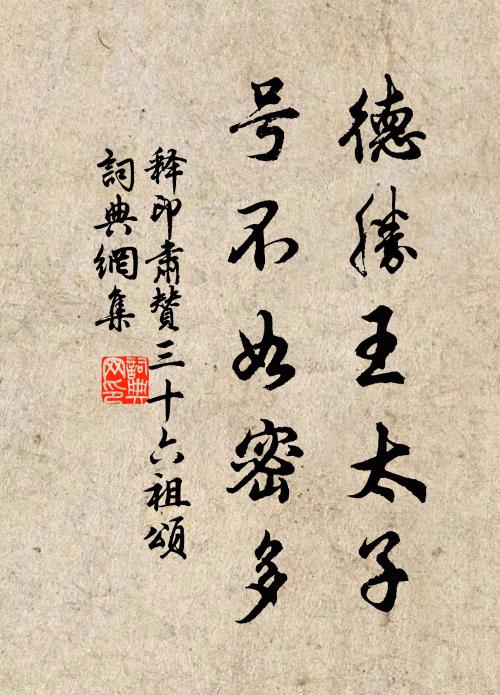 德勝王太子
号不如密多
释印肃赞三十六祖頌
詞典網集
詞典网印